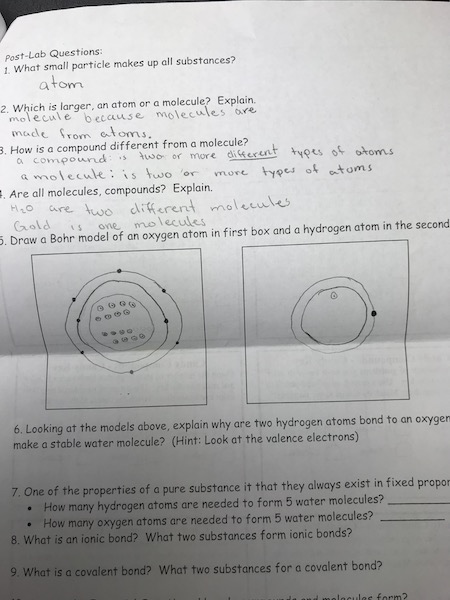 Post-Lab Questions:
1. What small particle makes up all substances?
atom
2. Which is larger, an atom or a molecule? Explain.
molecule because molecules are
made from atoms.
3. How is a compound different from a molecule?
a compound: is two or more different types of atoms
a molecule: is two or more types of atoms
4. Are all molecules, compounds? Explain.
H2O are two different molecules
Gold is one molecules
5. Draw a Bohr model of an oxygen atom in first box and a hydrogen atom in the second
6. Looking at the models above, explain why are two hydrogen atoms bond to an oxygen
make a stable water molecule? (Hint: Look at the valence electrons)
7. One of the properties of a pure substance it that they always exist in fixed propor
• How many hydrogen atoms are needed to form 5 water molecules?
• How many oxygen atoms are needed to form 5 water molecules?
8. What is an ionic bond? What two substances form ionic bonds?
9. What is a covalent bond? What two substances for a covalent bond?
and molecules form?